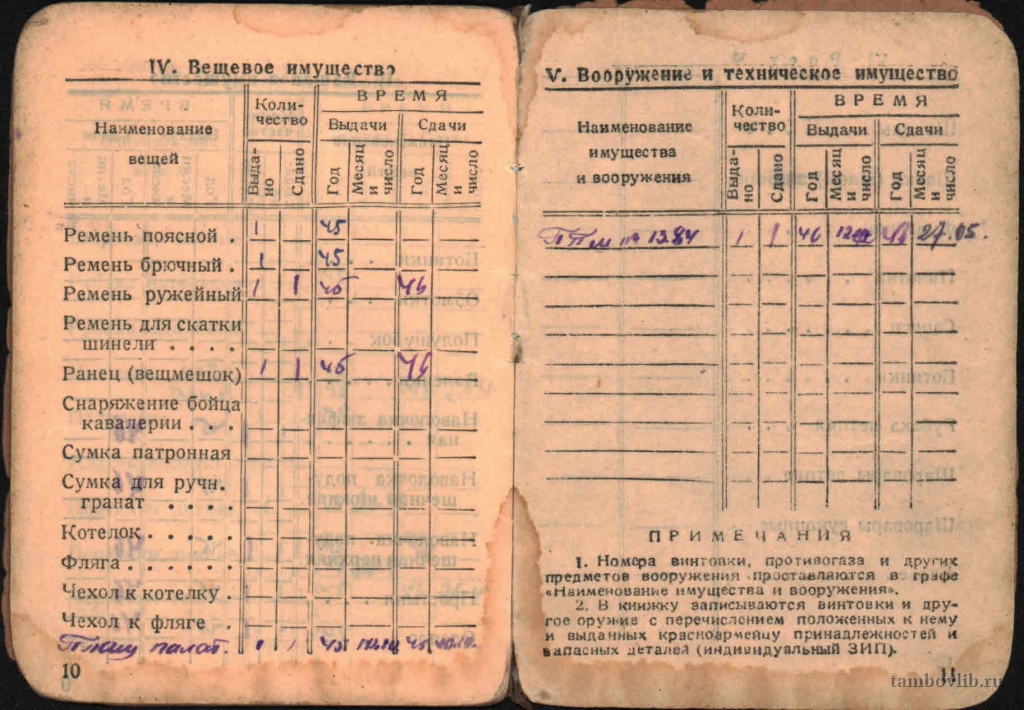 IV. Вещевое имущество
Наименование вещей
Количество
ВРЕМЯ
Выдачи
Сдачи
Выдано
Сдано
Год
Месяц и число
Год
Месяц и число
Ремень поясной . 1 45
Ремень брючный . 1 45
Ремень ружейный 1 1 45 46
Ремень для скатки
шинели . . . .
Ранец (вещмешок) 1 1 45 46
Снаряжение бойца
кавалерии . . .
Сумка патронная
Сумка для ручн.
гранат . . . .
Котелок . . . . .
Фляга . . . . . .
Чехол к котелку .
Чехол к фляге .
Плащ палат. 1 1 45
10
V. Вооружение и техническое имущество
Наименование
имущества
и вооружения
Коли-
чество
ВРЕМЯ
Выдачи
Сдачи
Выда-
но
Сдано
Год
Месяц и число
Год
Месяц и число
ППш № 1384 1 1 46 46 27.05.
ПРИМЕЧАНИЯ
1. Номера винтовки, противогаза и других
предметов вооружения проставляются в графе
«Наименование имущества и вооружения».
2. В книжку записываются винтовки и дру-
гое оружие с перечислением положенных к нему
и выданных красноармейцу принадлежностей и
запасных деталей (индивидуальный ЗИП).
11
tambovlib.ru